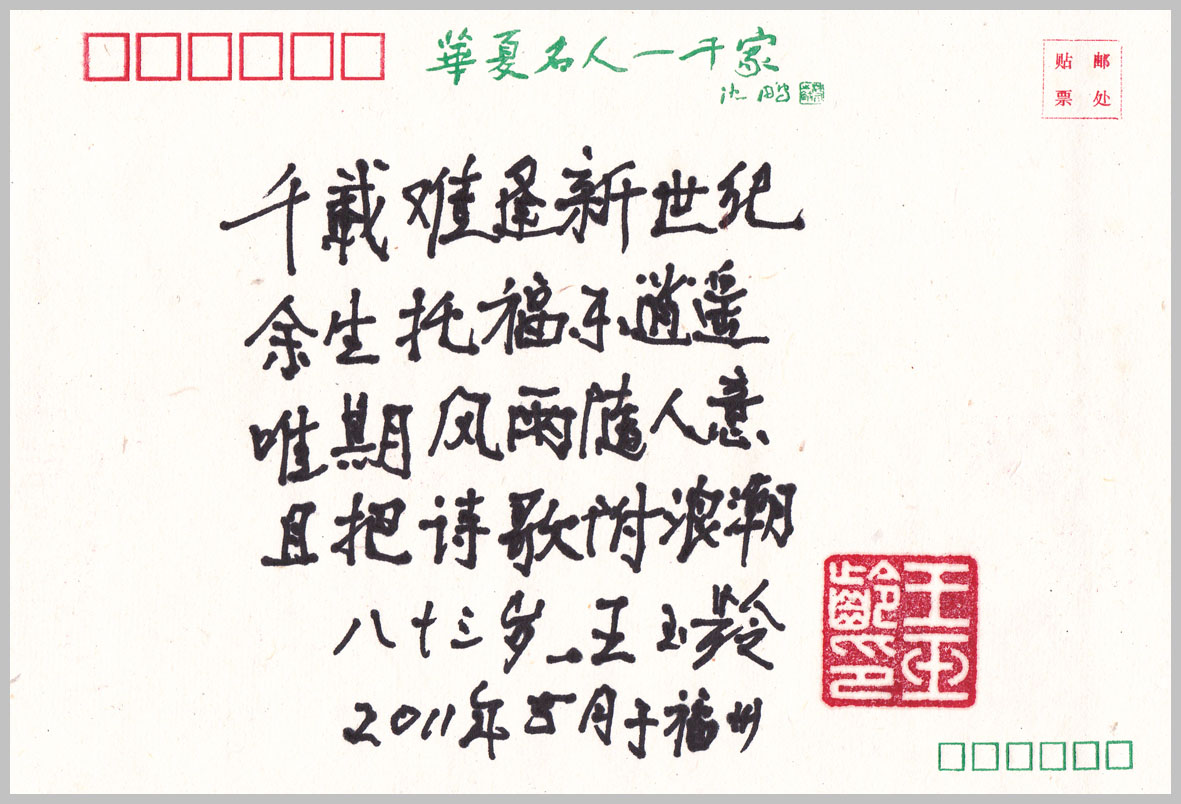 華夏名人一千家
沈鹏
贴邮
票处
千载难逢新世纪
余生托福乐逍遥
唯期风雨随人意
且把诗歌附浪潮
八十三岁 王玉龄
2011年5月于福州
王玉齡印